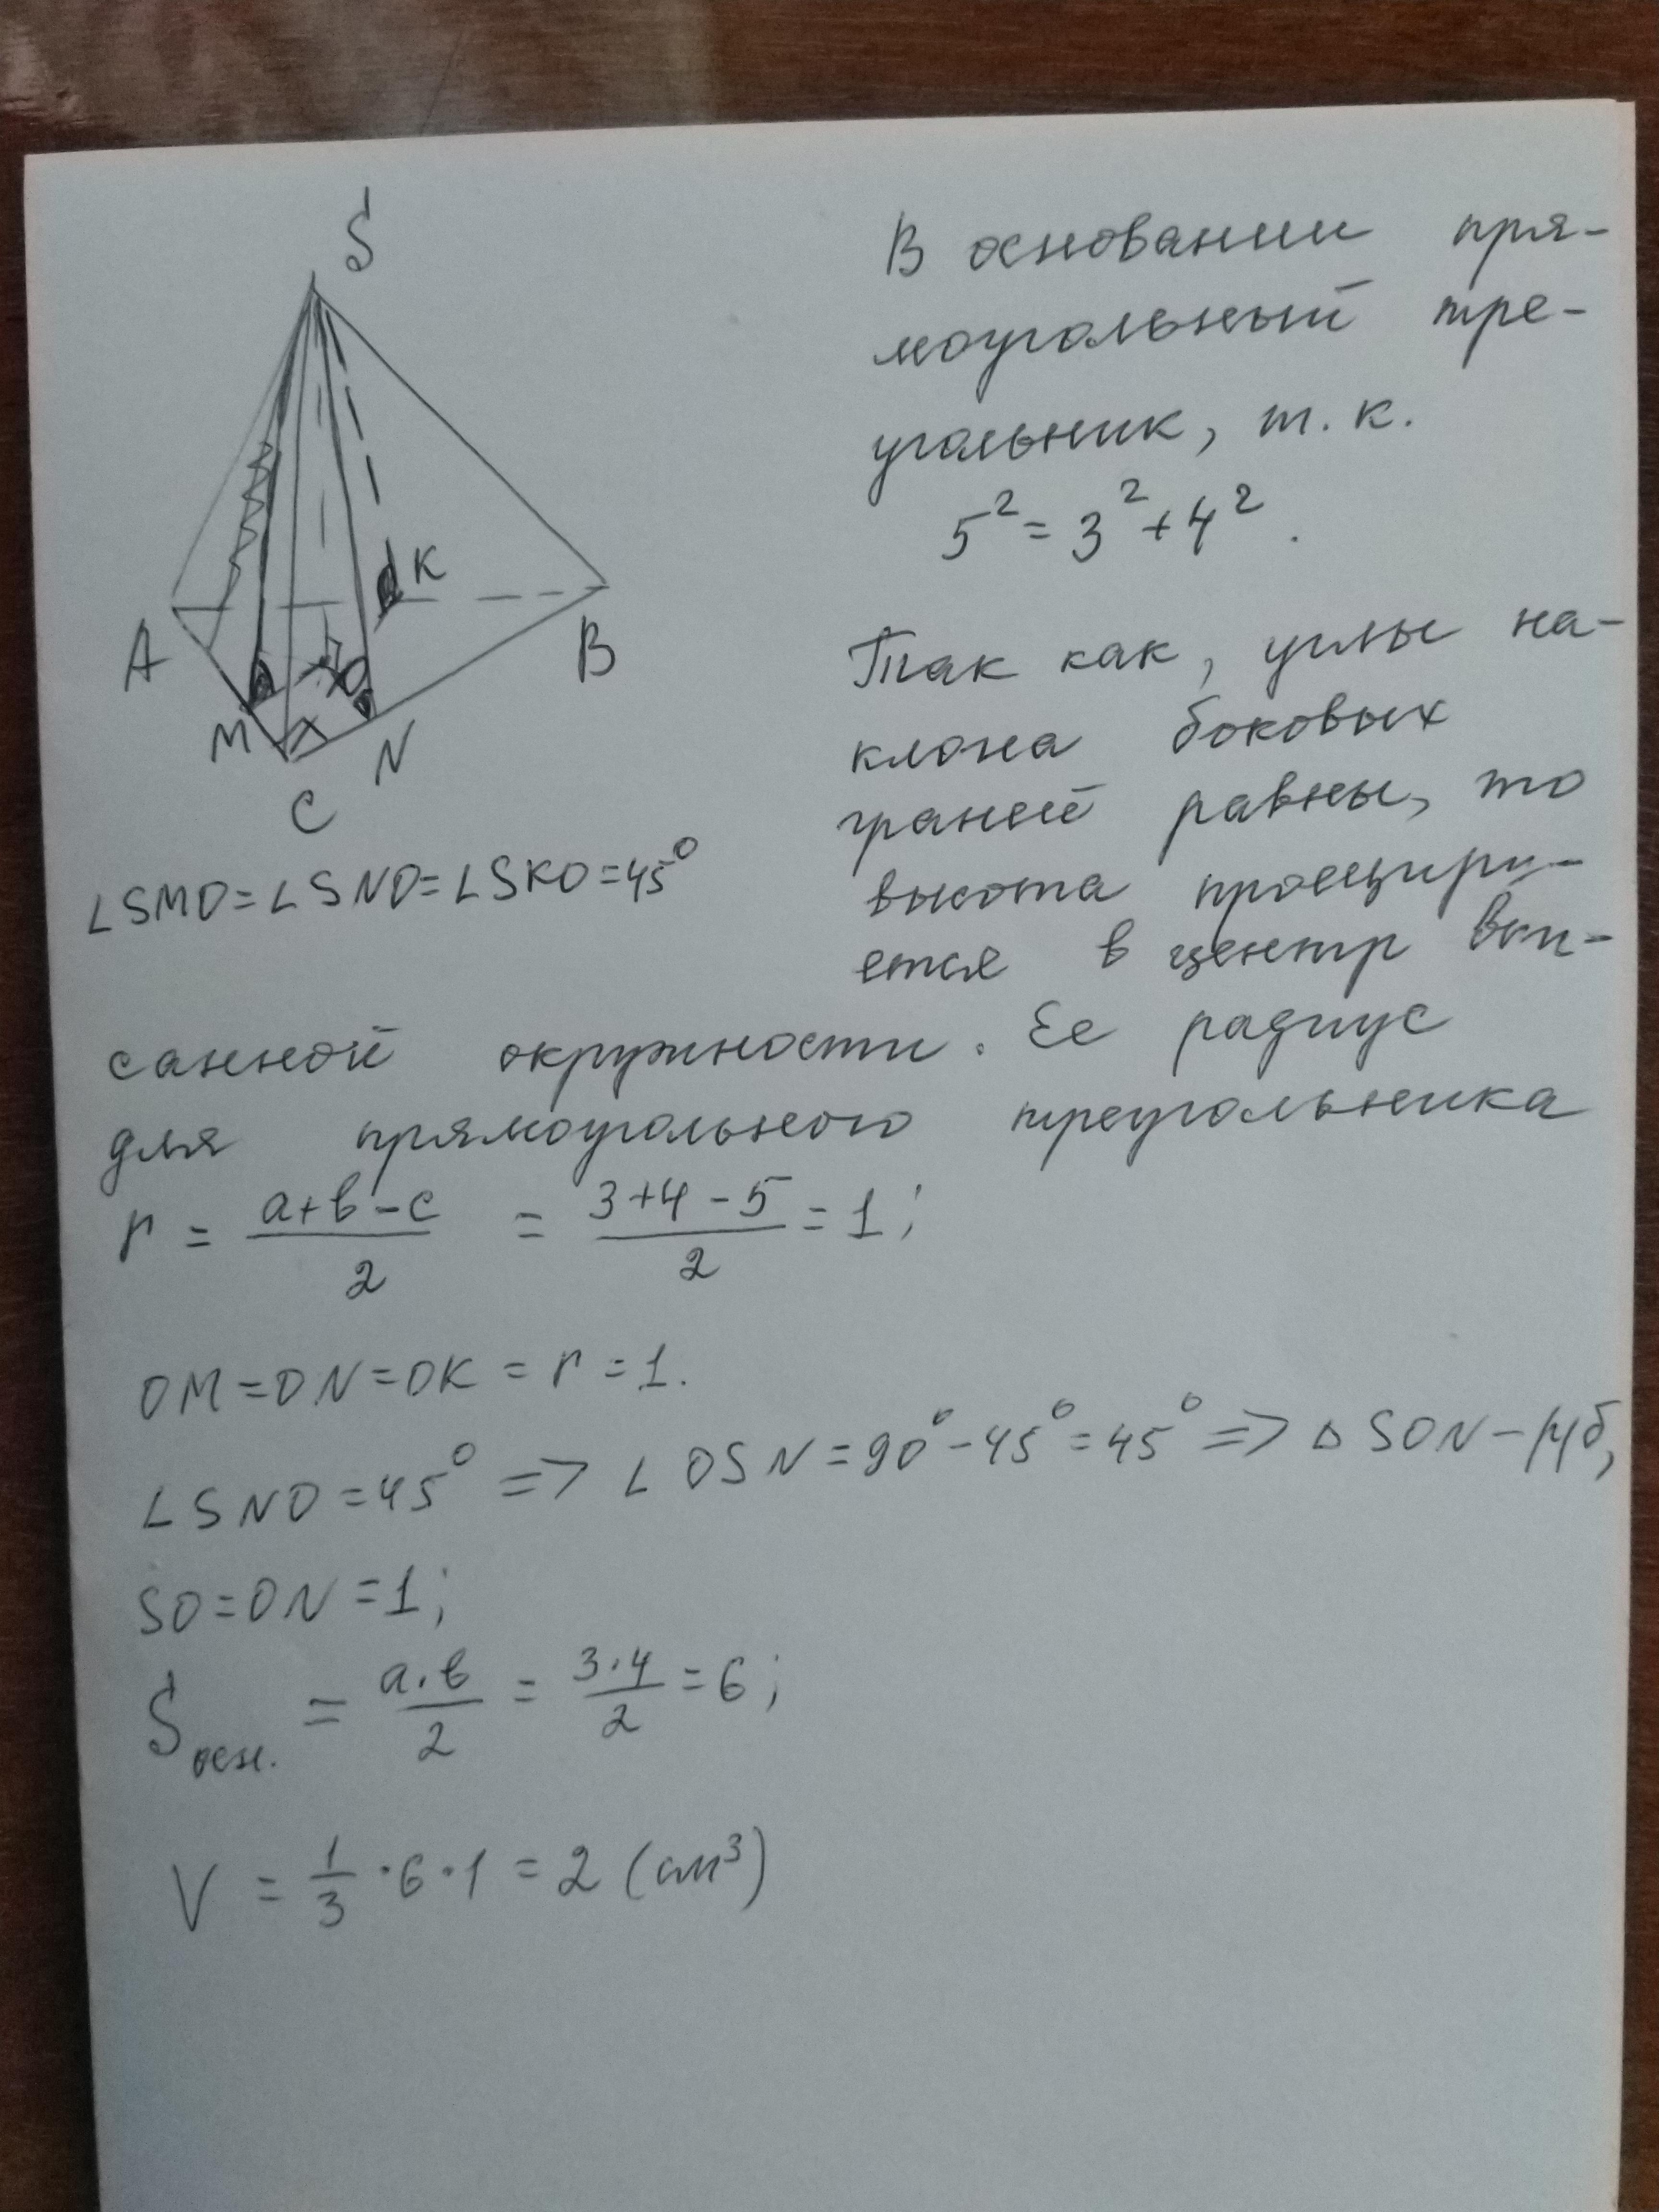 S
В основании пря-
моугольный тре-
угольник, т.к.
5² = 3² + 4².
K
A
B
O
M
N
C
Так как, углы на-
клона боковых
граней равны, то
высота проециру-
ется в центр впи-
∠SMO = ∠SNO = ∠SKO = 45°
санной окружности. Ее радиус
для прямоугольного треугольника
r = (a+b-c)/2 = (3+4-5)/2 = 1;
OM = ON = OK = r = 1.
∠SNO = 45° => ∠OSN = 90° - 45° = 45° => △SON - р/б,
SO = ON = 1;
Sосн. = (a·b)/2 = (3·4)/2 = 6;
V = 1/3 · 6 · 1 = 2 (см³)